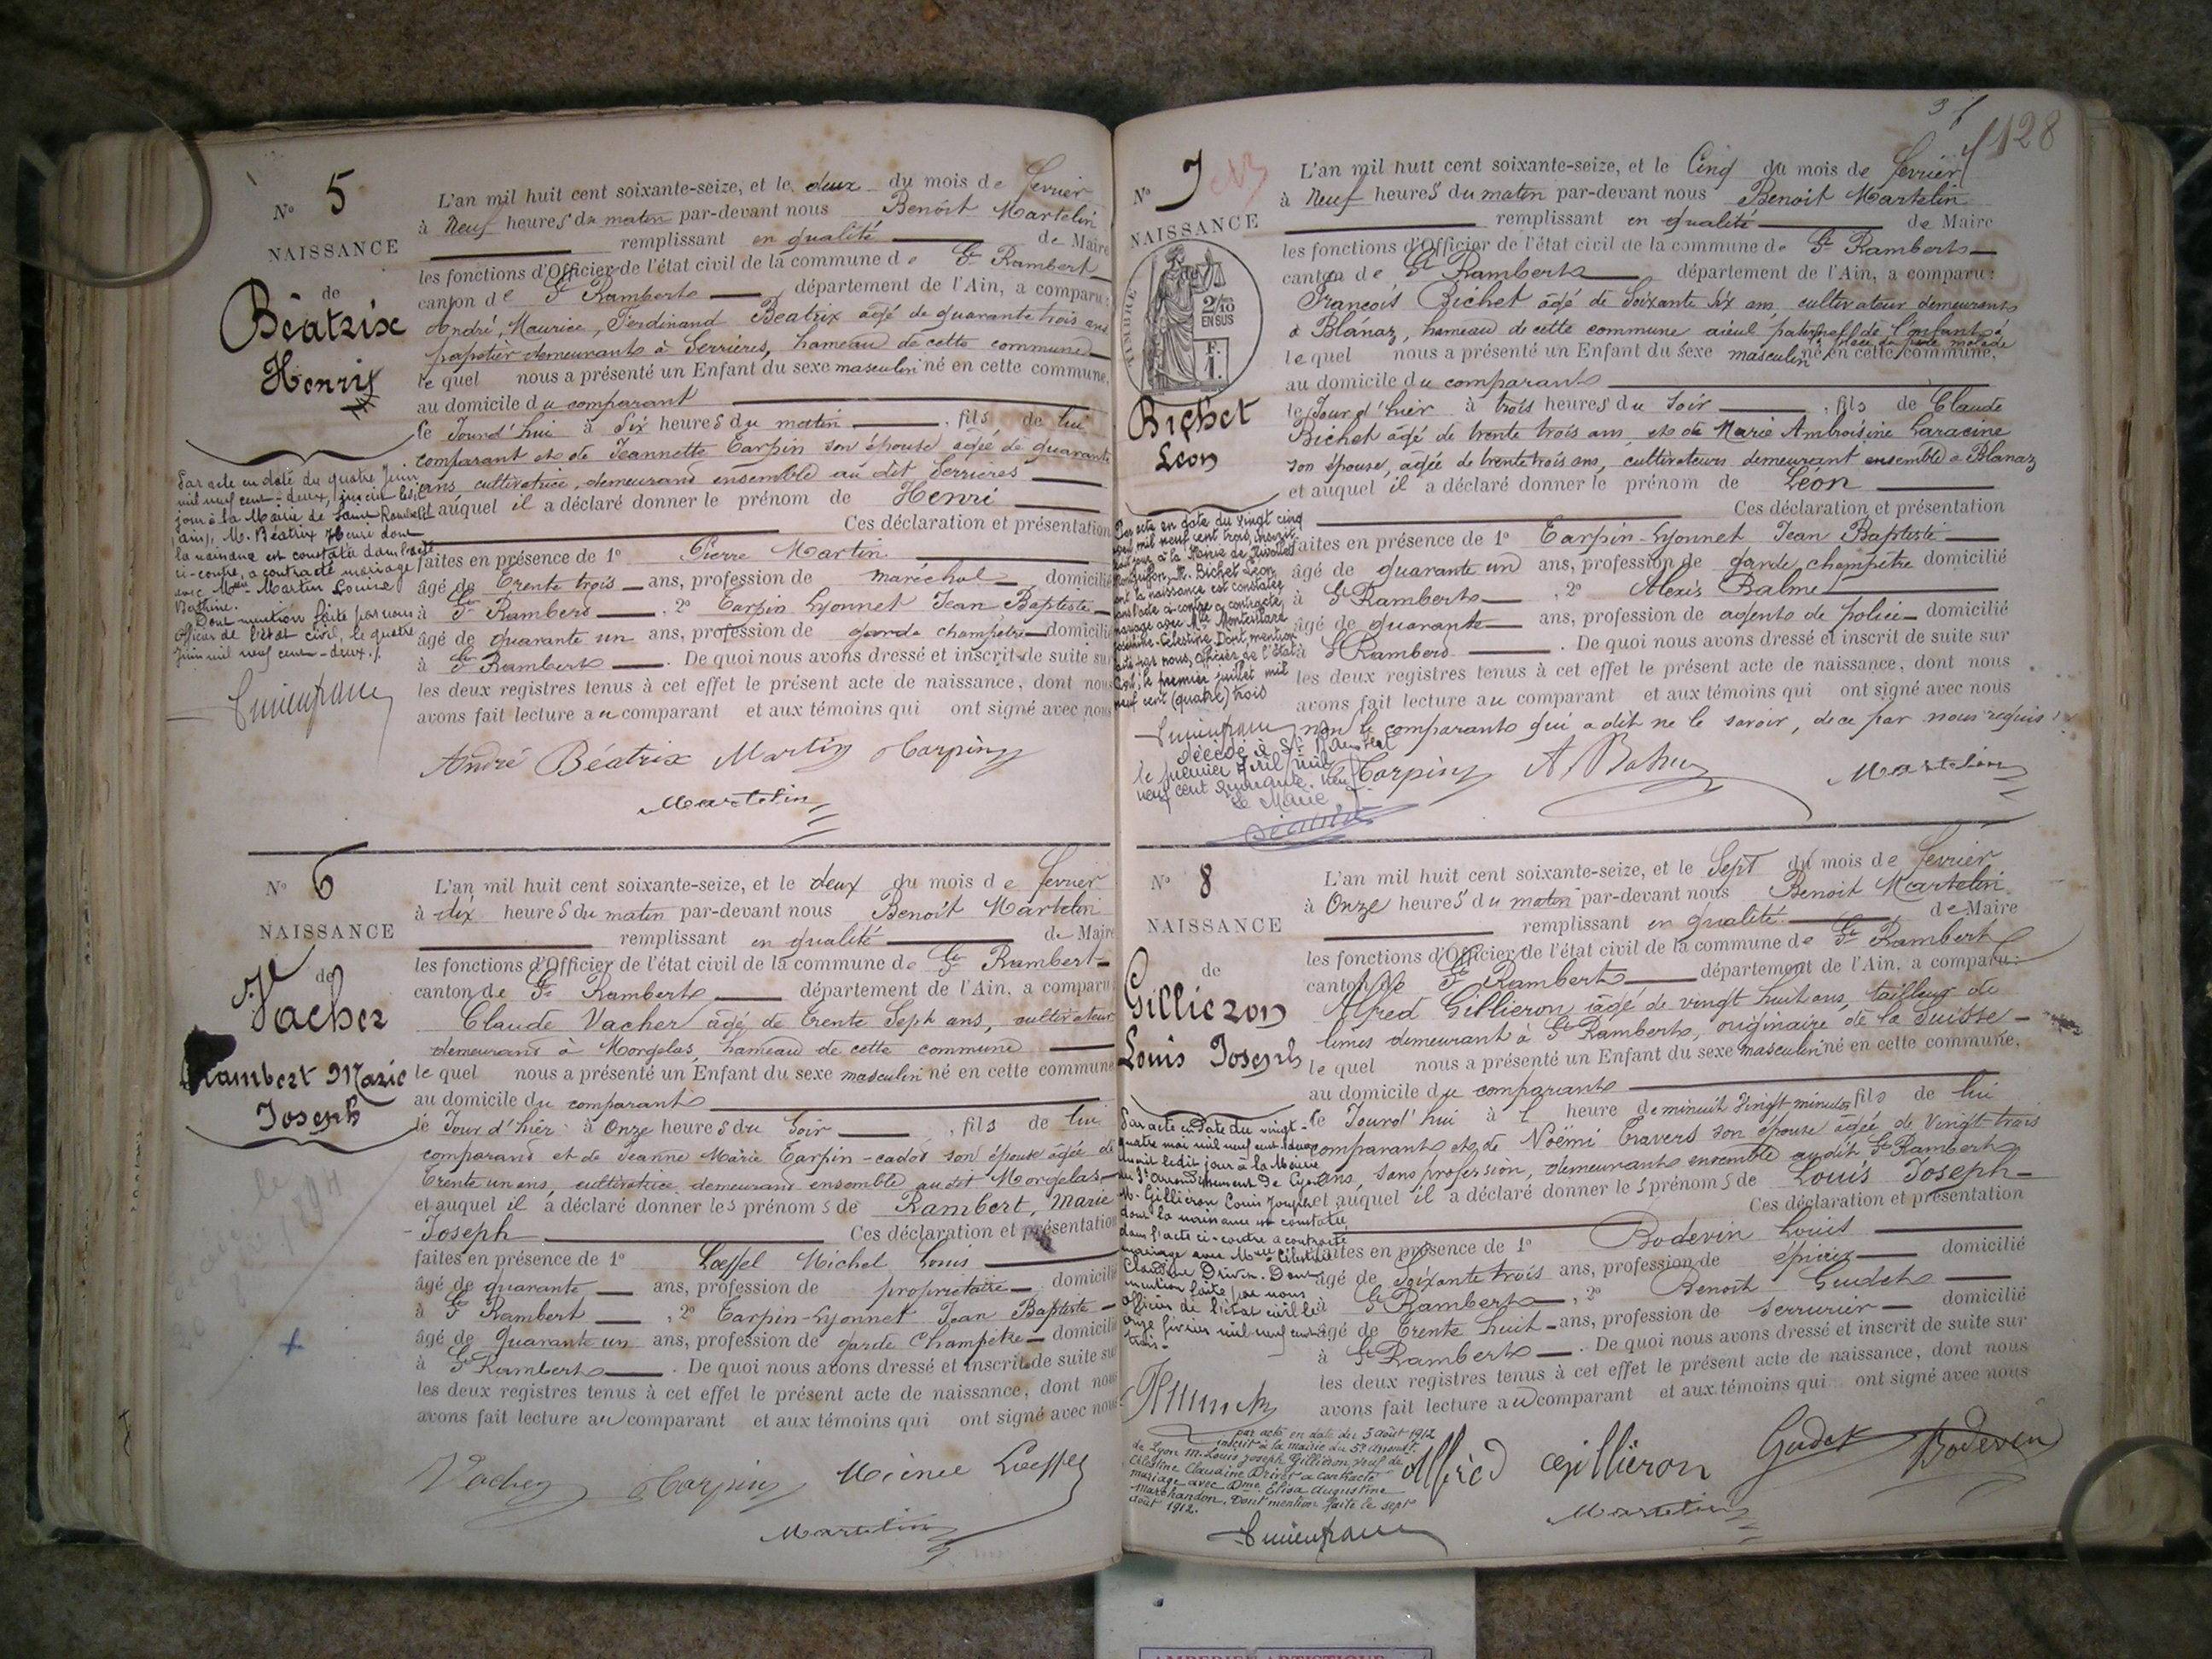 N° 5
NAISSANCE
de
Béatrix
Henri
L'an mil huit cent soixante-seize, et le deux du mois de fevrier
à Neuf heures du matin par-devant nous Benoît Martelin
remplissant en qualité de Maire
les fonctions d'Officier de l'état civil de la commune de St Rambert
canton de St Rambert département de l'Ain, a comparu:
André, Maurice, Ferdinand Beatrix âgé de quarante trois ans
papetier demeurant à Serrières, hameau de cette commune
le quel nous a présenté un Enfant du sexe masculin né en cette commune,
au domicile du comparant
le Jourd'hui à Six heures du matin, fils de lui
comparant et de Jeannette Carpin son épouse agée de quarante
ans, cultivatrice, demeurant ensemble au dit Serrieres
et auquel il a déclaré donner le prénom de Henri
Ces déclaration et présentation
faites en présence de 1° Pierre Martin
âgé de Trente trois ans, profession de maréchal domicilié
à St Rambert, 2° Carpin Lyonnet Jean Baptiste
âgé de quarante un ans, profession de garde champetre domicilié
à St Rambert. De quoi nous avons dressé et inscrit de suite sur
les deux registres tenus à cet effet le présent acte de naissance, dont nous
avons fait lecture au comparant et aux témoins qui ont signé avec nous
Par acte en date du quatre Juin
mil neuf cent-deux, inscrit ledit
jour à la Mairie de Saint Rambert
(ain), M. Béatrix Henri dont
la naissance est constatée dans l'acte
ci-contre, a contracté mariage
avec Melle Martin Louise
Dont mention faite par nous
officier de l'état civil, le quatre
Juin mil neuf cent-deux./.
André Béatrix Martin Carpin
Martelin
N° 6
NAISSANCE
de
Vacher
Rambert Marie
Joseph
L'an mil huit cent soixante-seize, et le deux du mois de fevrier
à dix heures du matin par-devant nous Benoît Martelin
remplissant en qualité de Maire
les fonctions d'Officier de l'état civil de la commune de St Rambert
canton de St Rambert département de l'Ain, a comparu
Claude Vacher âgé de Trente Sept ans, cultivateur
demeurant à Morgelas, hameau de cette commune
le quel nous a présenté un Enfant du sexe masculin né en cette commune
au domicile du comparant
le Jour d'hier à Onze heures du Soir, fils de lui
comparant et de Jeanne Marie Carpin-cadot son épouse agée de
Trente un ans, cultivatrice demeurant ensemble au dit Morgelas
et auquel il a déclaré donner les prénoms de Rambert, Marie
Joseph Ces déclaration et présentation
faites en présence de 1° Loeffel Michel Louis
âgé de quarante ans, profession de propriétaire domicilié
à St Rambert, 2° Carpin-Lyonnet Jean Baptiste
âgé de Quarante un ans, profession de garde Champêtre domicilié
à St Rambert. De quoi nous avons dressé et inscrit de suite sur
les deux registres tenus à cet effet le présent acte de naissance, dont nous
avons fait lecture au comparant et aux témoins qui ont signé avec nous
Vacher Carpin Loeffel
Martelin
128
N° 7
NAISSANCE
TIMBRE
2/10
EN SUS
Bichet
Léon
L'an mil huit cent soixante-seize, et le Cinq du mois de fevrier
à Neuf heures du matin par-devant nous Benoit Martelin
remplissant en qualité de Maire
les fonctions d'Officier de l'état civil de la commune de St Rambert
canton de St Rambert département de l'Ain, a comparu:
François Bichet âgé de Soixante Six ans, cultivateur demeurant
à Blanaz, hameau de cette commune aïeul paternel de l'enfant à
place du père malade
le quel nous a présenté un Enfant du sexe masculin né en cette commune,
au domicile du comparant
le Jourd'hier à trois heures du Soir, fils de Claude
Bichet âgé de trente trois ans et de Marie Ambroisine Laracine
son épouse, agée de trente trois ans, cultivateurs demeurant ensemble à Blanaz
et auquel il a déclaré donner le prénom de Léon
Ces déclaration et présentation
faites en présence de 1° Carpin-Lyonnet Jean Baptiste
âgé de quarante un ans, profession de garde champêtre domicilié
à St Rambert, 2° Alexis Balme
âgé de quarante ans, profession de agent de police domicilié
à St Rambert. De quoi nous avons dressé et inscrit de suite sur
les deux registres tenus à cet effet le présent acte de naissance, dont nous
avons fait lecture au comparant et aux témoins qui ont signé avec nous
non le comparant qui a dit ne le savoir, de ce par nous requis
Par acte en date du vingt cinq
mil neuf cent trois, inscrit
jour à la Mairie de
M. Bichet Léon
dont la naissance est constatée
dans l'acte ci-contre a contracté
mariage avec Melle
Célestine. Dont mention
faite par nous, officier de l'état
civil, le premier juillet mil
neuf cent (quatre) trois
décédé à St Rambert
le premier Avril mil
neuf cent quarante neuf
Le Maire,
Carpin A Balme Martelin
N° 8
NAISSANCE
de
Gillieron
Louis Joseph
L'an mil huit cent soixante-seize, et le Sept du mois de fevrier
à Onze heures du matin par-devant nous Benoit Martelin
remplissant en qualité de Maire
les fonctions d'Officier de l'état civil de la commune de St Rambert
canton de St Rambert département de l'Ain, a comparu:
Alfred Gillieron âgé de vingt huit ans, tailleur de
limes demeurant à St Rambert, originaire de la Suisse
le quel nous a présenté un Enfant du sexe masculin né en cette commune,
au domicile du comparant
le Jourd'hui à l heure de minuit vingt minutes fils de lui
comparant et de Noëmi Travers son épouse agée de Vingt-trois
ans, sans profession, demeurant ensemble au dit St Rambert
et auquel il a déclaré donner les prénoms de Louis Joseph
Ces déclaration et présentation
faites en présence de 1° Bodevin Louis
âgé de Soixante trois ans, profession de épicier domicilié
à St Rambert, 2° Benoit Gudet
âgé de Trente huit ans, profession de serrurier domicilié
à St Rambert. De quoi nous avons dressé et inscrit de suite sur
les deux registres tenus à cet effet le présent acte de naissance, dont nous
avons fait lecture au comparant et aux témoins qui ont signé avec nous
Par acte en date du vingt-
quatre mai mil neuf cent deux
inscrit ledit jour à la Mairie
du 3e arrondissement de Lyon
M. Gilliéron Louis Joseph
dont la naissance est constatée
dans l'acte ci-contre a contracté
mariage avec Melle Célestine
Claudine Drivet. Dont
mention faite par nous
officier de l'état civil le
onze février mil neuf cent
trois.
par acte en date du 3 août 1912
inscrit à la mairie du 5e arrondt
de Lyon M. Louis Joseph Gilliéron, veuf de
Célestine Claudine Drivet a contracté
mariage avec Dme Elisa Augustine
Marchandon. Dont mention faite le sept
août 1912.
Alfred Gilliéron Gudet Bodevin
Martelin
AMBERIEU ARTISTIQUE